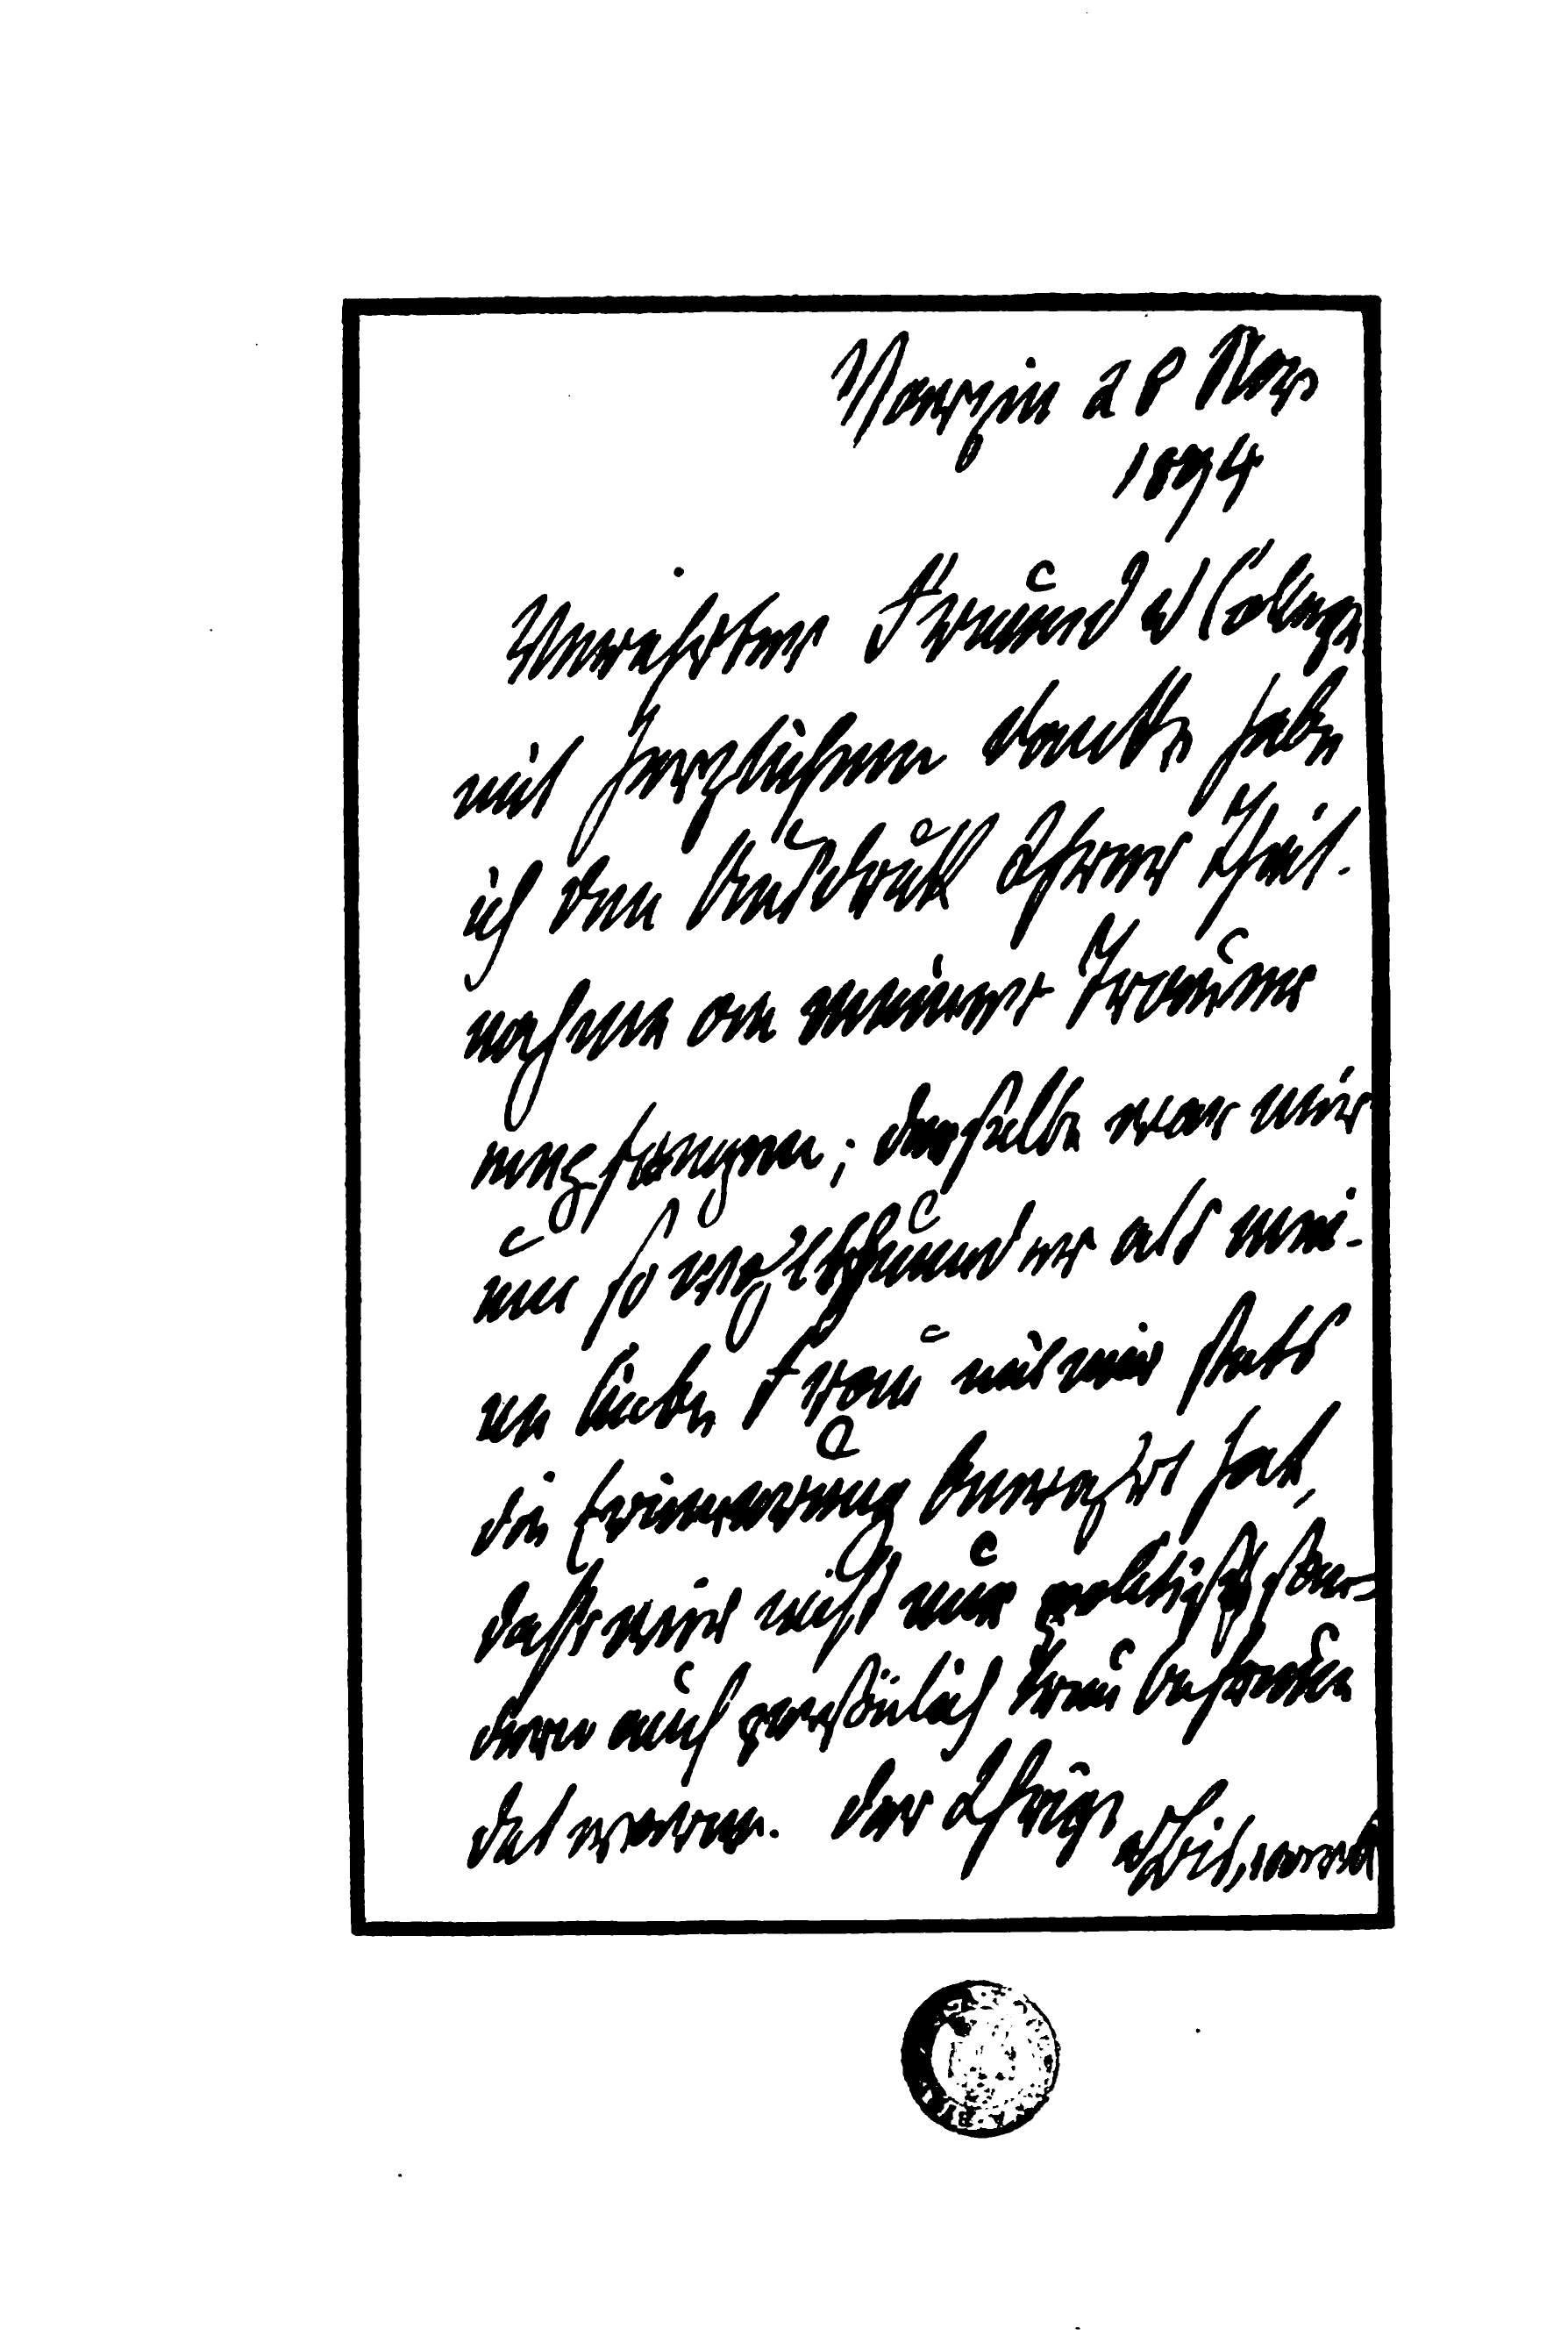 Varzin 28 Nov
1894
Verehrter Freund u Collega
mit herzlichem Danke habe
ich den Ausdruck Ihrer Theil-
nahme an meiner Trauer
empfangen; derselbe war mir
um so wohlthuender als mei-
ne liebe Frau mit mir stets
die Erinnerung bewahrt hat,
daß wir nicht nur politisch son-
dern auch persönlich treu befreun
det waren. Der Ihrige
vBismarck